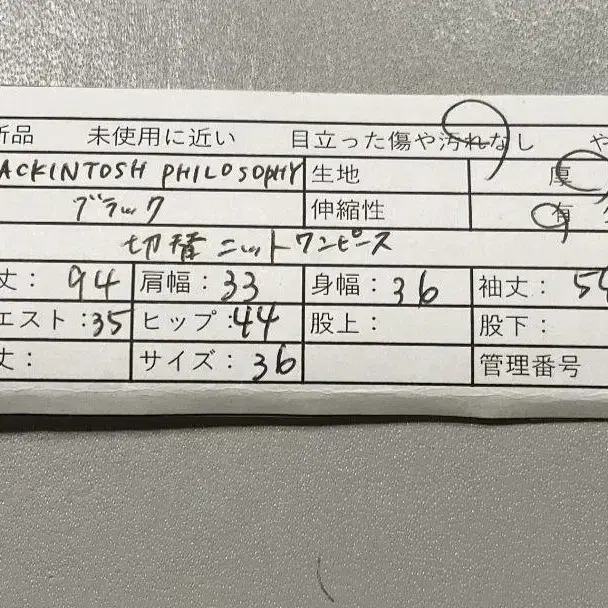 新品 未使用に近い 目立った傷や汚れなし や
ACKINTOSH PHILOSOPHY 生地 厚
ブラック 伸縮性 有
切替ニットワンピース
丈: 94 肩幅:33 身幅:36 袖丈: 54
エスト:35 ヒップ:44 股上: 股下:
丈: サイズ:36 管理番号